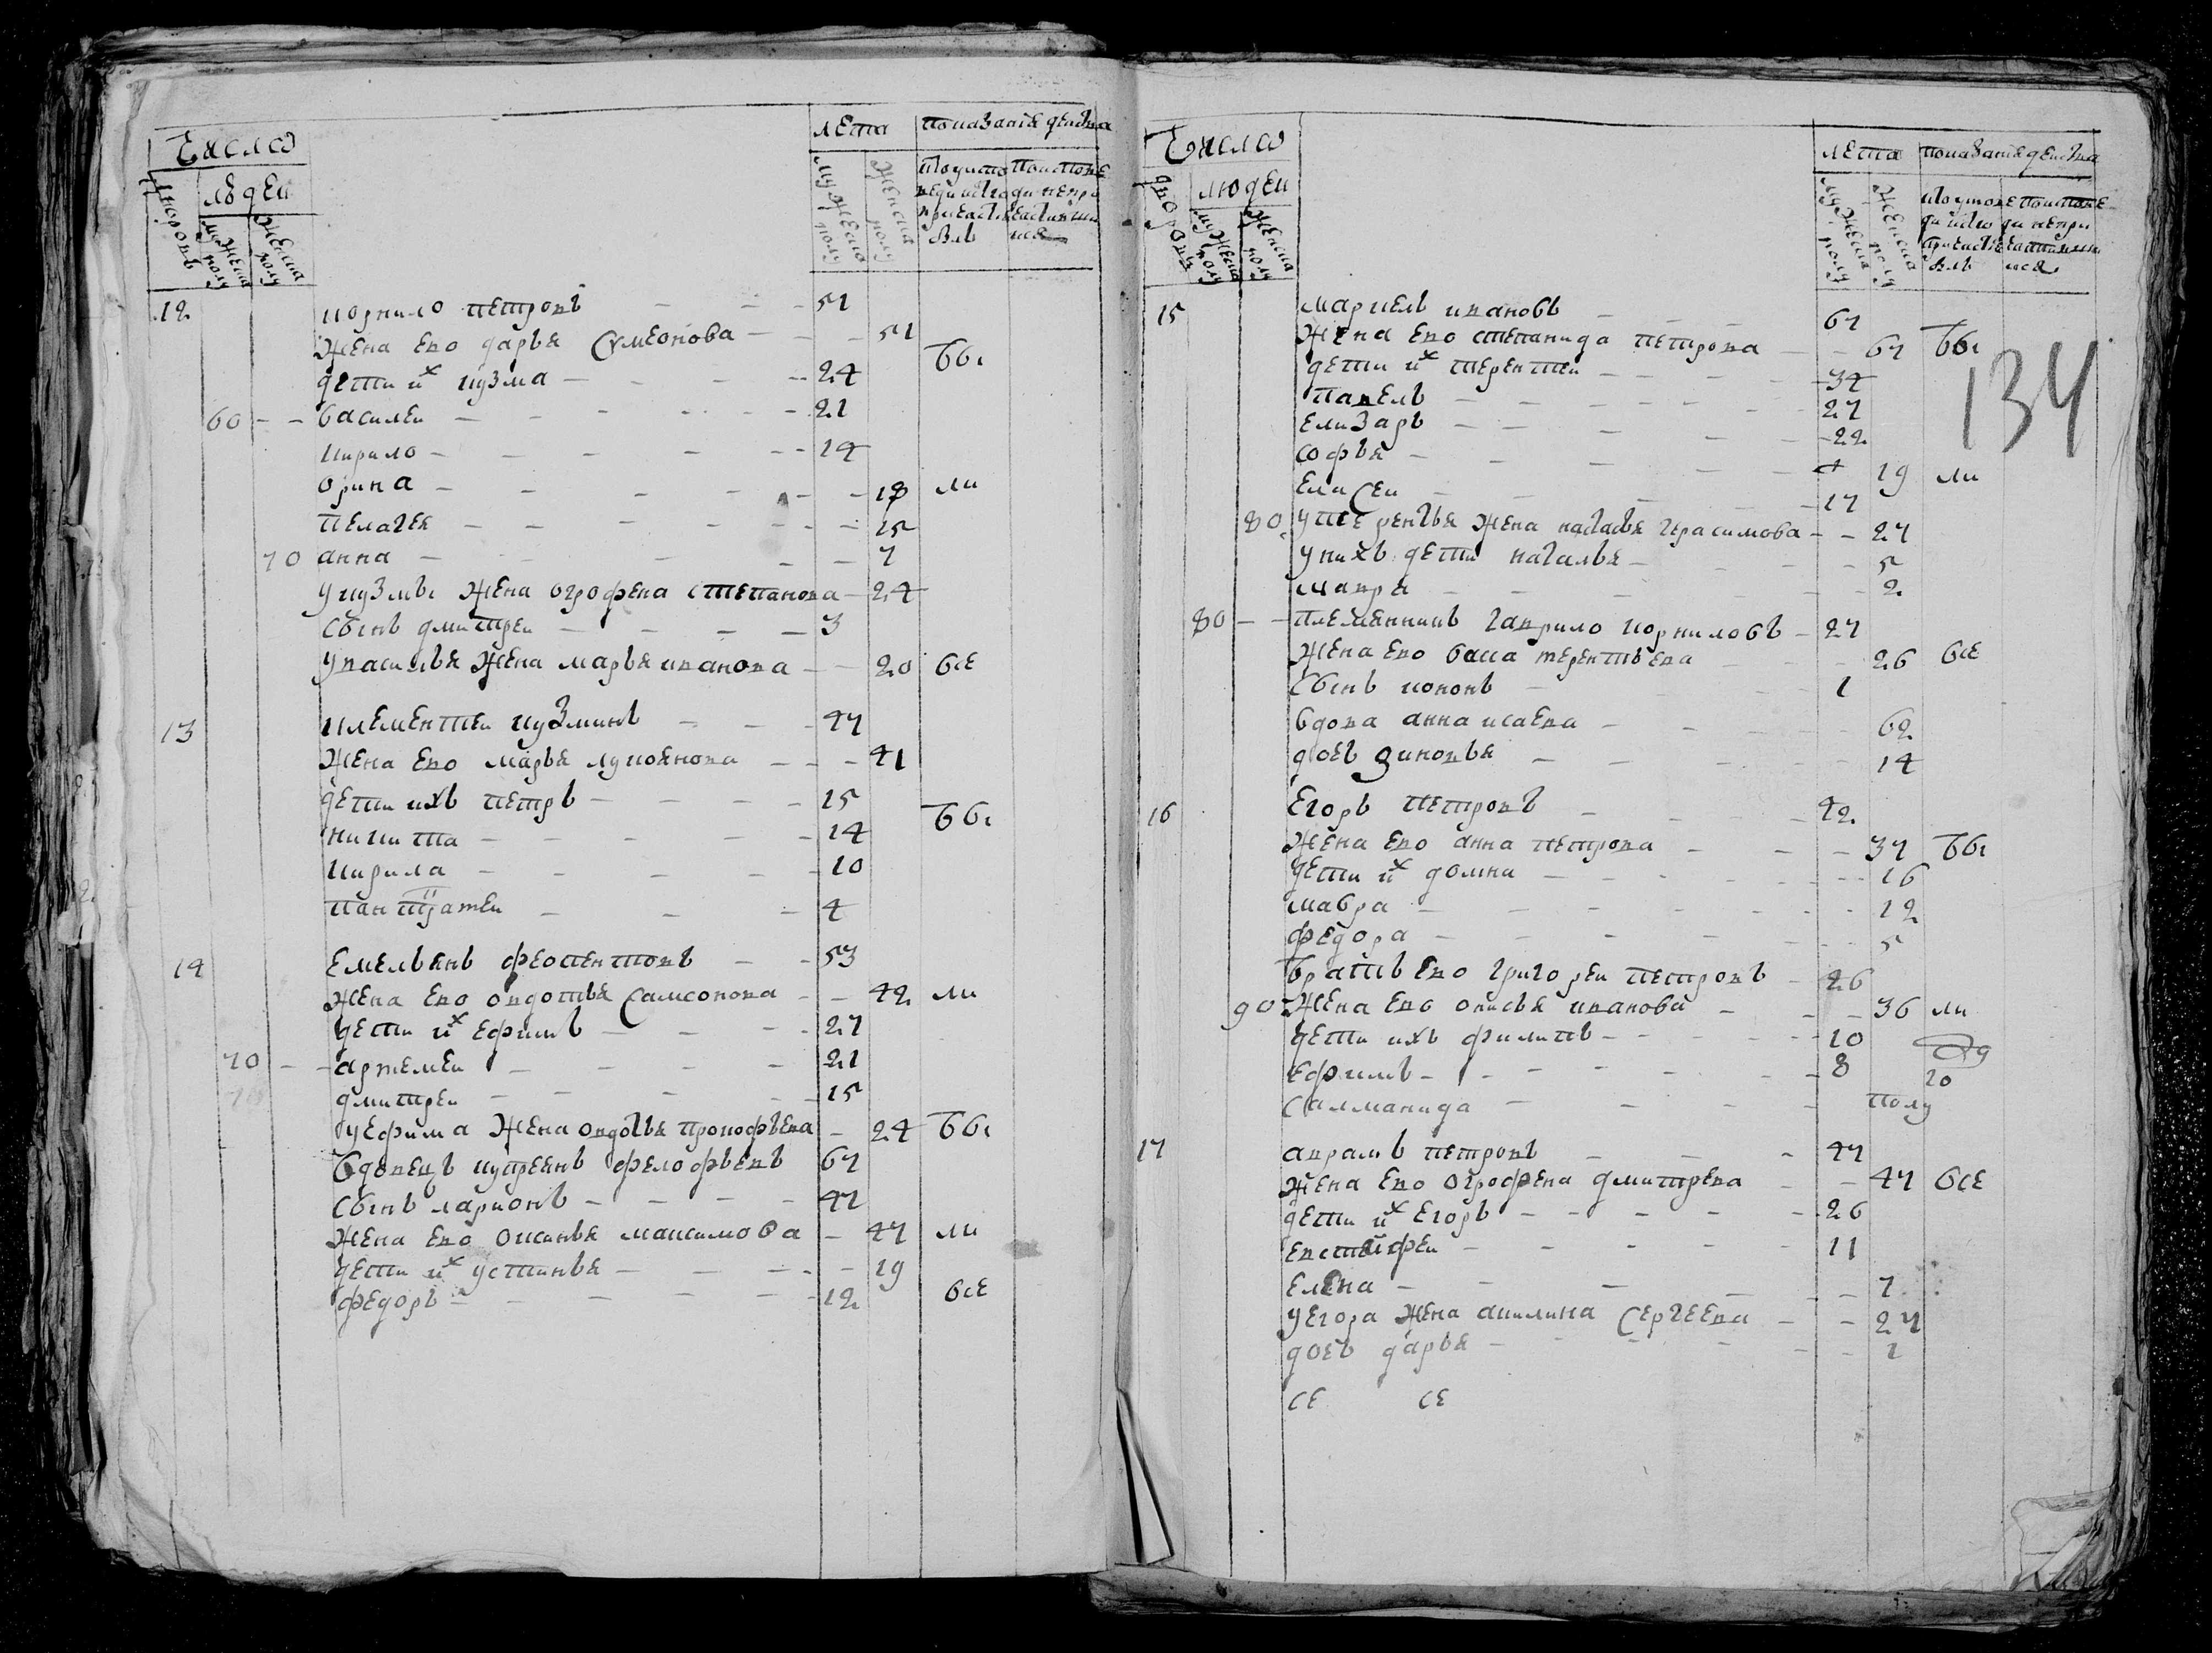 Число
лѣта показаніе действа
дворовъ
людеи
мужеска полу
женска полу
мужеска полу
женска полу
12 корнило петровъ 51
жена ево дарья сумеонова 51
дети их кузма 24 бы
60 василеи 21
кирило 14
орина 18 ли
пелагея 15
70 анна 7
у кузмы жена огрофена степанова 24
сынъ дмитреи 3
у василья жена марья иванова 20 все
13 клементеи кузминъ 47
жена ево марья лукоянова 41
дети ихъ петръ 15
никита 14 бы
кирила 10
4
14 емельянъ феопентовъ 53
жена ево овдотья самсонова 42 ли
дети их ефимъ 27
70 артемеи 21
дмитреи 15
у ефима жена овдотья прокофьева 24 бы
вдовецъ купреянъ фелофьевъ 67
сынъ ларионъ 47
жена ево оксинья максимова 47 ли
дети их устинья 19
федоръ 12 все
Число
лета показаніе действа
дворовъ
людеи
мужеска полу
женска полу
мужеска полу
женска полу
134
15 маркелъ ивановъ 67
жена ево степанида петрова 67 бы
дети их терентеи 34
павелъ 27
елизаръ 22
софья 19 ли
елисеи 17
80 у терентья жена насталья герасимова 27
у нихъ дети наталья 5
мавра 2
80 племянникъ гаврило корниловъ 27
жена ево васса терентьева 26 все
сынъ кононъ 1
вдова анна исаева 62
дочь зиновья 14
16 егоръ петровъ 42
жена ево анна петрова 37 бы
дети их домна 16
мавра 12
федора 5
братъ ево григореи петровъ 26
90 жена ево онисья иванова 36 ли
дети ихъ филипъ 10
ефимъ 8
салманида полу
17 аврамъ петровъ 47
жена ево огрофена дмитрева 47 все
дети их егоръ 26
евстифеи 11
елена 7
у егора жена акилина сергеева 27
дочь дарья 1
се се